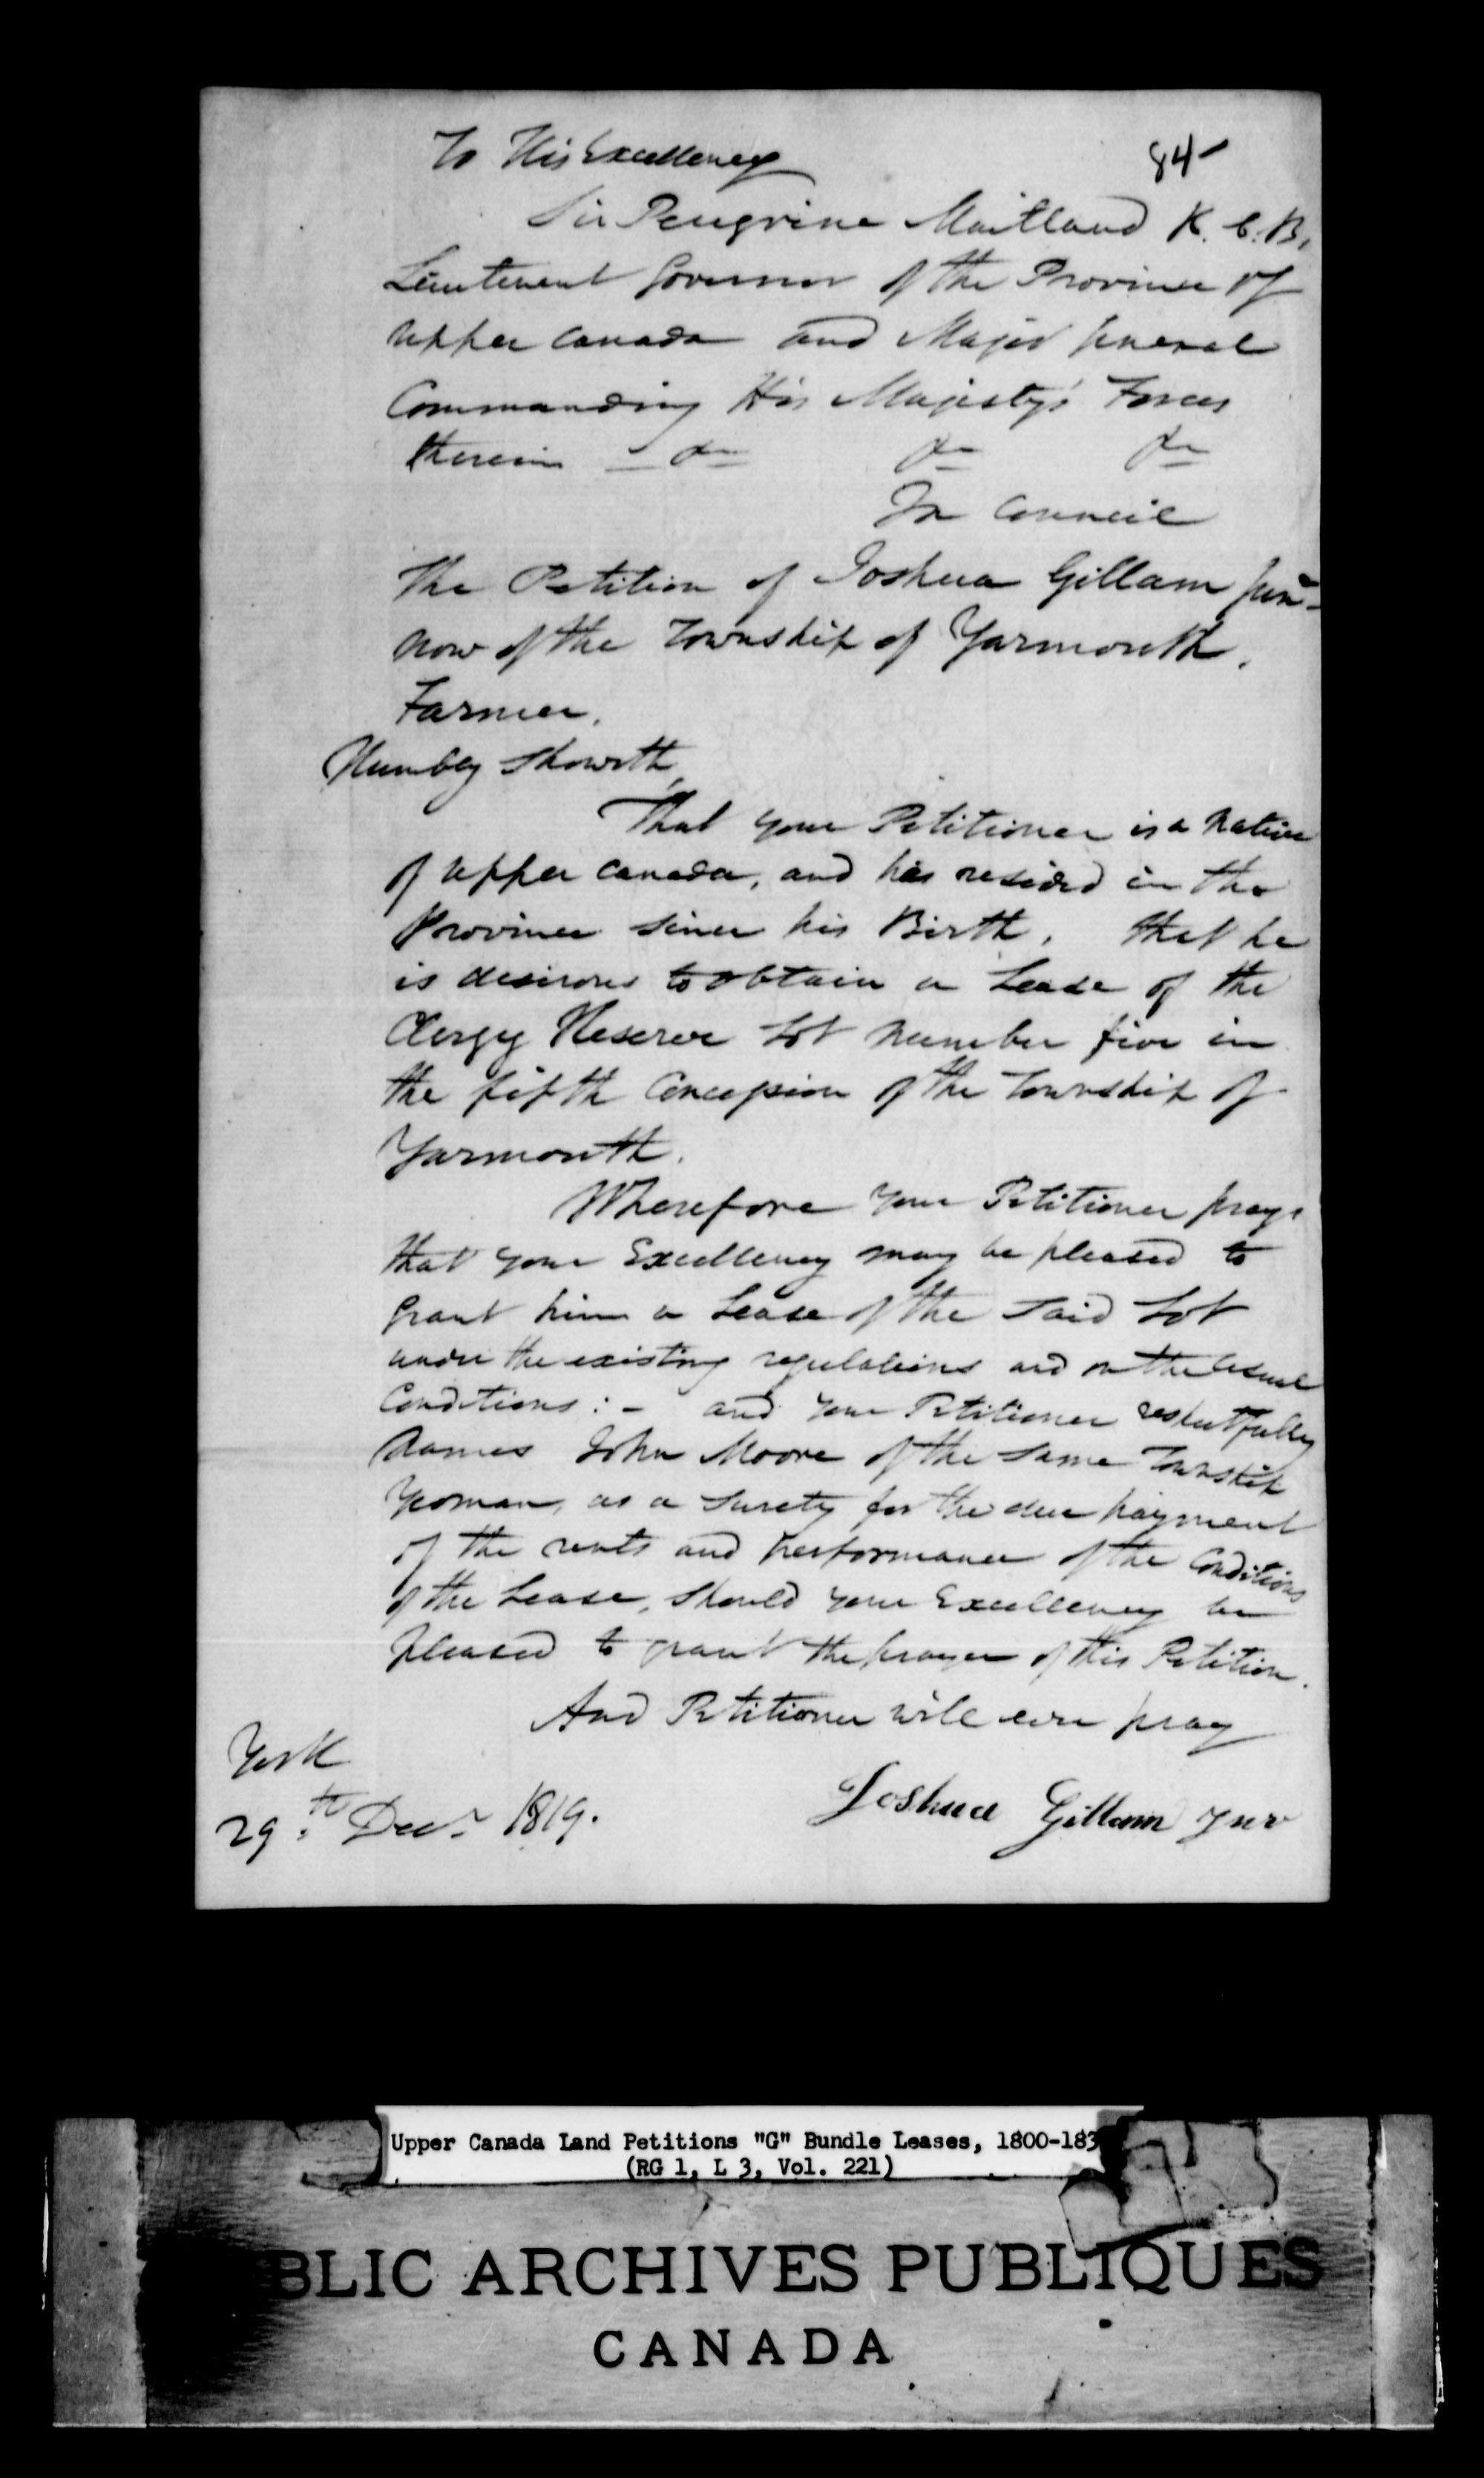 84
To His Excellency
Sir Peregrine Maitland K. C. B.
Lieutenant Governor of the Province of
Upper Canada and Major General
Commanding His Majesty's Forces
therein &c &c &c
In Council
The Petition of Joshua Gillam Junr
now of the Township of Yarmouth,
Farmer.
Humbly Showeth,
That your Petitioner is a Native
of Upper Canada, and has resided in the
Province since his Birth. That he
is desirous to obtain a Lease of the
Clergy Reserve Lot Number five in
the fifth Concession of the Township of
Yarmouth.
Wherefore your Petitioner prays
that your Excellency may be pleased to
Grant him a Lease of the said Lot
under the existing regulations and on the usual
Conditions: - and your Petitioner respectfully
names John Moore of the same Township
Yeoman, as a surety for the due payment
of the rents and performance of the Conditions
of the Lease, should your Excellency be
pleased to grant the prayer of this Petition.
And Petitioner will ever pray
York
29th Decr 1819.
Joshua Gillam Jnr
Upper Canada Land Petitions "G" Bundle Leases, 1800-183
(RG 1, L 3, Vol. 221)
BLIC ARCHIVES PUBLIQUES
CANADA